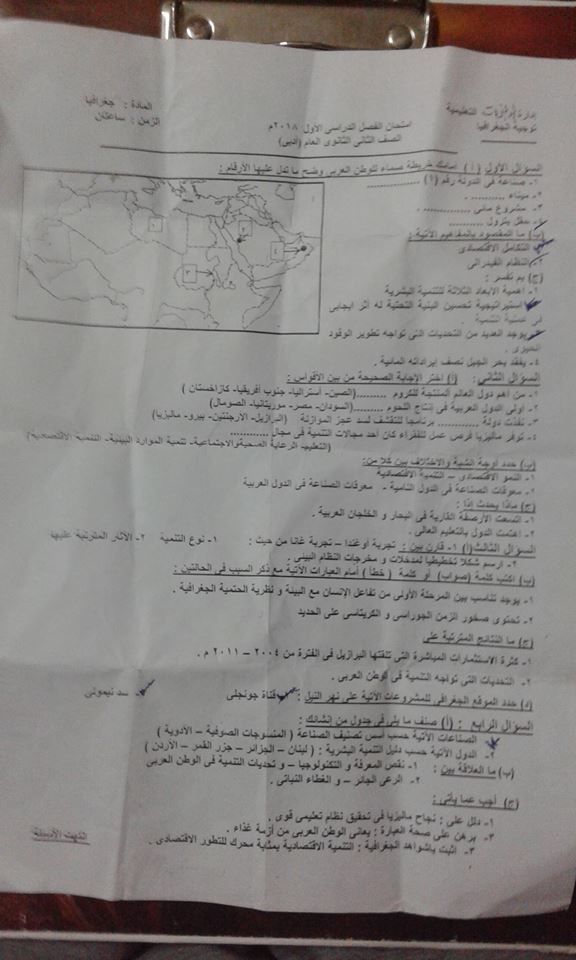 إدارة التعليمية
توجيه الجغرافيا
امتحان الفصل الدراسى الأول ٢٠١٨م
الصف الثانى الثانوى العام (أدبى)
المادة : جغرافيا
الزمن : ساعتان
السؤال الأول ( أ ) أمامك خريطة صماء للوطن العربى وضح ما تدل عليها الأرقام :
١- صناعة فى الدولة رقم (١) ............
٢- ميناء ..........
٣- مشروع مائى ............
٤- حقل بترول ..........
(ب) ما المقصود بالمفاهيم الآتية :
١- التكامل الاقتصادى
٢- النظام الفيدرالى
(ج) بم تفسر :
١- أهمية الأبعاد الثلاثة للتنمية البشرية
٢- استراتيجية تحسين البنية التحتية له أثر ايجابى
فى عملية التنمية .
٣- يوجد العديد من التحديات التى تواجه تطوير الوقود
الحيوى .
٤- يفقد بحر الجبل نصف إيراداته المائية .
السؤال الثانى : (أ) اختر الإجابة الصحيحة من بين الأقواس :
١- من أهم دول العالم المنتجة للكروم .........(الصين- أستراليا- جنوب أفريقيا- كازاخستان )
٢- أولى الدول العربية فى إنتاج اللحوم .........(السودان- مصر- موريتانيا- الصومال)
٣- نفذت دولة ........... برنامجا للتقشف لسد عجز الموازنة (البرازيل- الارجنتين- بيرو- ماليزيا)
٤- توفر ماليزيا فرص عمل للفقراء كان أحد مجالات التنمية فى مجال ..........
(التعليم- الرعاية الصحية والاجتماعية- تنمية الموارد البيئية- التنمية الاقتصادية)
(ب) حدد أوجة الشبة والاختلاف بين كلا من:
١- النمو الاقتصادى – التنمية الاقتصادية
٢- معوقات الصناعة فى الدول النامية - معوقات الصناعة فى الدول العربية
(ج) ماذا يحدث إذا :
١- اتسعت الأرصفة القارية فى البحار و الخلجان العربية .
٢- اهتمت الدول بالتعليم العالى .
السؤال الثالث:(أ) ١- قارن بين : تجربة أوغندا – تجربة غانا من حيث : ١- نوع التنمية ٢- الآثار المترتبة عليها
٢- ارسم شكلا تخطيطيا لمدخلات و مخرجات النظام البيئى .
(ب) اكتب كلمة (صواب) أو كلمة ( خطأ ) أمام العبارات الآتية مع ذكر السبب فى الحالتين :
١- يوجد تناسب بين المرحلة الأولى من تفاعل الإنسان مع البيئة و نظرية الحتمية الجغرافية .
٢- تحتوى صخور الزمن الجوراسى و الكريتاسى على الحديد
(ج) ما النتائج المترتبة على
١- كثرة الاستثمارات المباشرة التى تلقتها البرازيل فى الفترة من ٢٠٠٤ – ٢٠١١ م .
٢- التحديات التى تواجه التنمية فى الوطن العربى .
(د) حدد الموقع الجغرافى للمشروعات الآتية على نهر النيل : ١- قناة جونجلى ٢- سد نيمولى
السؤال الرابع : (أ) صنف ما يلى فى جدول من إنشائك :
١- الصناعات الآتية حسب أسس تصنيف الصناعة ( المنسوجات الصوفية – الأدوية )
٢- الدول الآتية حسب دليل التنمية البشرية : ( لبنان – الجزائر – جزر القمر – الأردن )
(ب) ما العلاقة بين : ١- نقص المعرفة و التكنولوجيا – و تحديات التنمية فى الوطن العربى
٢- الرعى الجائر – و الغطاء النباتى .
(ج) أجب عما يأتى :
١- دلل على : نجاح ماليزيا فى تحقيق نظام تعليمى قوى .
٢- برهن على صحة العبارة : يعانى الوطن العربى من أزمة غذاء .
٣- أثبت بالشواهد الجغرافية : التنمية الاقتصادية بمثابة محرك للتطور الاقتصادى .
انتهت الأسئلة